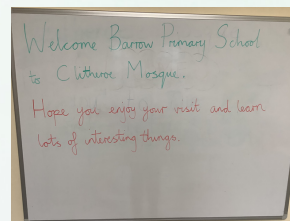 Welcome Barrow Primary School
to Clitheroe Mosque.
Hope you enjoy your visit and learn
lots of interesting things.